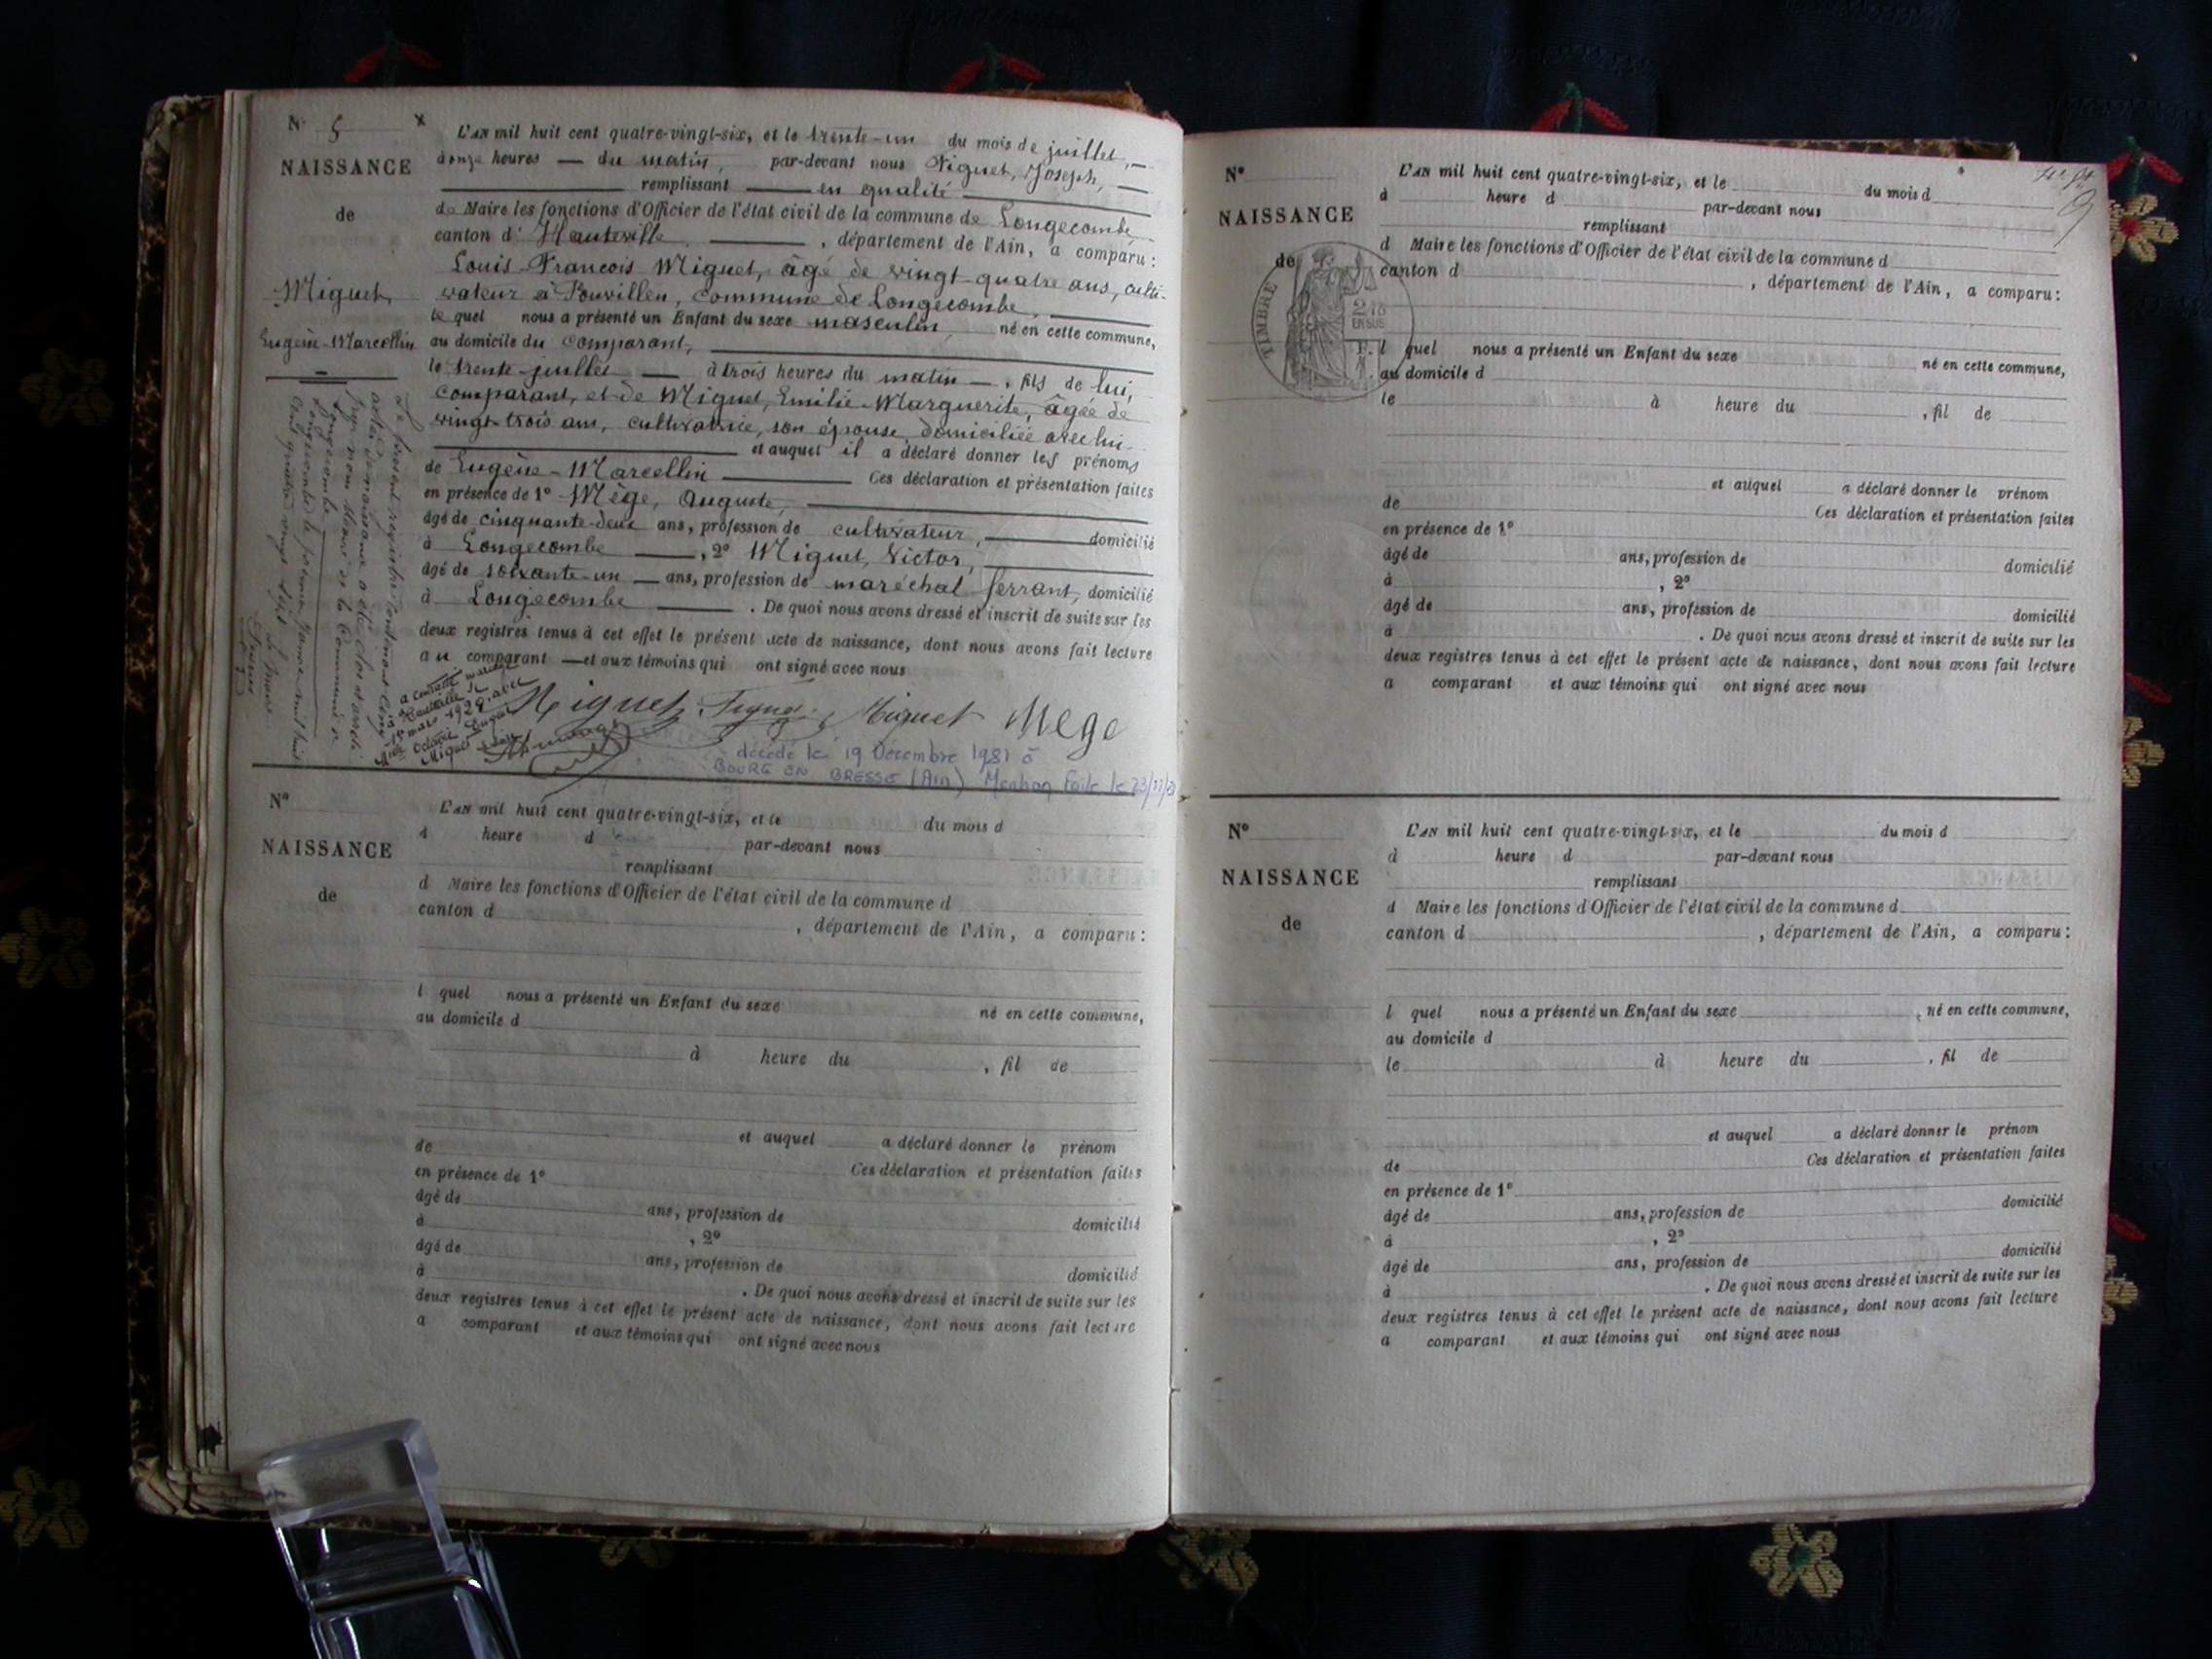 N° 5
NAISSANCE
de
Miguet,
Eugène-Marcellin
L'AN mil huit cent quatre-vingt-six, et le trente-un du mois de juillet,
à onze heures du matin, par-devant nous Figuet, Joseph,
remplissant en qualité
de Maire les fonctions d'Officier de l'état civil de la commune de Longecombe
canton d'Hauteville, département de l'Ain, a comparu :
Louis François Miguet, âgé de vingt-quatre ans, culti-
vateur à Pouvilleu, commune de Longecombe,
le quel nous a présenté un Enfant du sexe masculin, né en cette commune,
au domicile du comparant,
le trente juillet à trois heures du matin, fils de lui,
comparant, et de Miguet, Emilie-Marguerite, âgée de
vingt-trois ans, cultivatrice, son épouse, domiciliée avec lui
et auquel il a déclaré donner les prénoms
de Eugène-Marcellin Ces déclaration et présentation faites
en présence de 1° Mège, Auguste,
âgé de cinquante-deux ans, profession de cultivateur, domicilié
à Longecombe, 2° Miguet, Victor,
âgé de soixante-un ans, profession de maréchal ferrant, domicilié
à Longecombe. De quoi nous avons dressé et inscrit de suite sur les
deux registres tenus à cet effet le présent acte de naissance, dont nous avons fait lecture
au comparant et aux témoins qui ont signé avec nous
Miguet Miguet Mège
Le présent registre contenant cinq
actes de naissance a été clos et arrêté
par nous Maire de la Commune de
Longecombe
Longecombe le premier janvier mil huit
cent quatre vingt sept
Le Maire
a contracté mariage
à Hauteville le
mars 1929 avec
Octavie
Miguet
décédé le 19 Décembre 1981 à
BOURG EN BRESSE (Ain) Mention Faite le 23/12/81
N°
NAISSANCE
de
L'AN mil huit cent quatre-vingt-six, et le du mois d
à heure d par-devant nous
remplissant
d Maire les fonctions d'Officier de l'état civil de la commune d
canton d , département de l'Ain, a comparu :
l quel nous a présenté un Enfant du sexe né en cette commune,
au domicile d
à heure du , fil de
et auquel a déclaré donner le prénom
de Ces déclaration et présentation faites
en présence de 1°
âgé de ans, profession de domicilié
à , 2°
âgé de ans, profession de domicilié
à . De quoi nous avons dressé et inscrit de suite sur les
deux registres tenus à cet effet le présent acte de naissance, dont nous avons fait lecture
a comparant et aux témoins qui ont signé avec nous
N°
NAISSANCE
de
TIMBRE
EN SUS
L'AN mil huit cent quatre-vingt-six, et le du mois d
à heure d par-devant nous
remplissant
d Maire les fonctions d'Officier de l'état civil de la commune d
canton d , département de l'Ain, a comparu :
l quel nous a présenté un Enfant du sexe né en cette commune,
au domicile d
le à heure du , fil de
et auquel a déclaré donner le prénom
de Ces déclaration et présentation faites
en présence de 1°
âgé de ans, profession de domicilié
à , 2°
âgé de ans, profession de domicilié
à . De quoi nous avons dressé et inscrit de suite sur les
deux registres tenus à cet effet le présent acte de naissance, dont nous avons fait lecture
a comparant et aux témoins qui ont signé avec nous
N°
NAISSANCE
de
L'AN mil huit cent quatre-vingt-six, et le du mois d
à heure d par-devant nous
remplissant
d Maire les fonctions d'Officier de l'état civil de la commune d
canton d , département de l'Ain, a comparu :
l quel nous a présenté un Enfant du sexe , né en cette commune,
au domicile d
le à heure du , fil de
et auquel a déclaré donner le prénom
de Ces déclaration et présentation faites
en présence de 1°
âgé de ans, profession de domicilié
à , 2°
âgé de ans, profession de domicilié
à . De quoi nous avons dressé et inscrit de suite sur les
deux registres tenus à cet effet le présent acte de naissance, dont nous avons fait lecture
a comparant et aux témoins qui ont signé avec nous